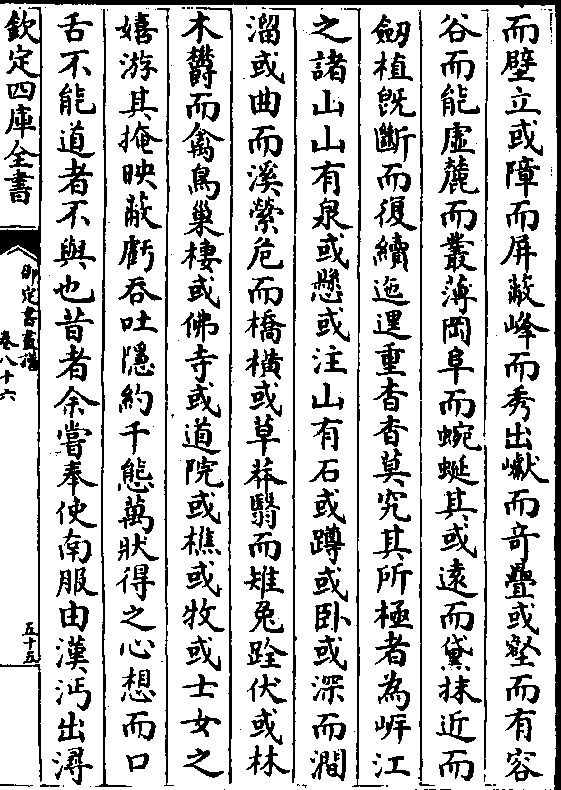 而壁立或障而屏蔽峰而秀出巘而奇疊或壑而有容
谷而能虛麓而叢薄岡阜而蜿蜒其或遠而黛抹近而
劒植既斷而復續迤邐重杳杳莫究其所極者為㟁江
之諸山山有泉或懸或注山有石或蹲或卧或深而澗
溜或曲而溪縈危而橋横或草莽翳而雉兔跧伏或林
木欝而禽鳥巢棲或佛寺或道院或樵或牧或士女之
嬉游其掩映蔽虧吞吐隱約千態萬狀得之心想而口
舌不能道者不與也昔者余嘗奉使南服由漢沔出潯
欽定四庫全書
御定書畫譜
卷八十六
五十五